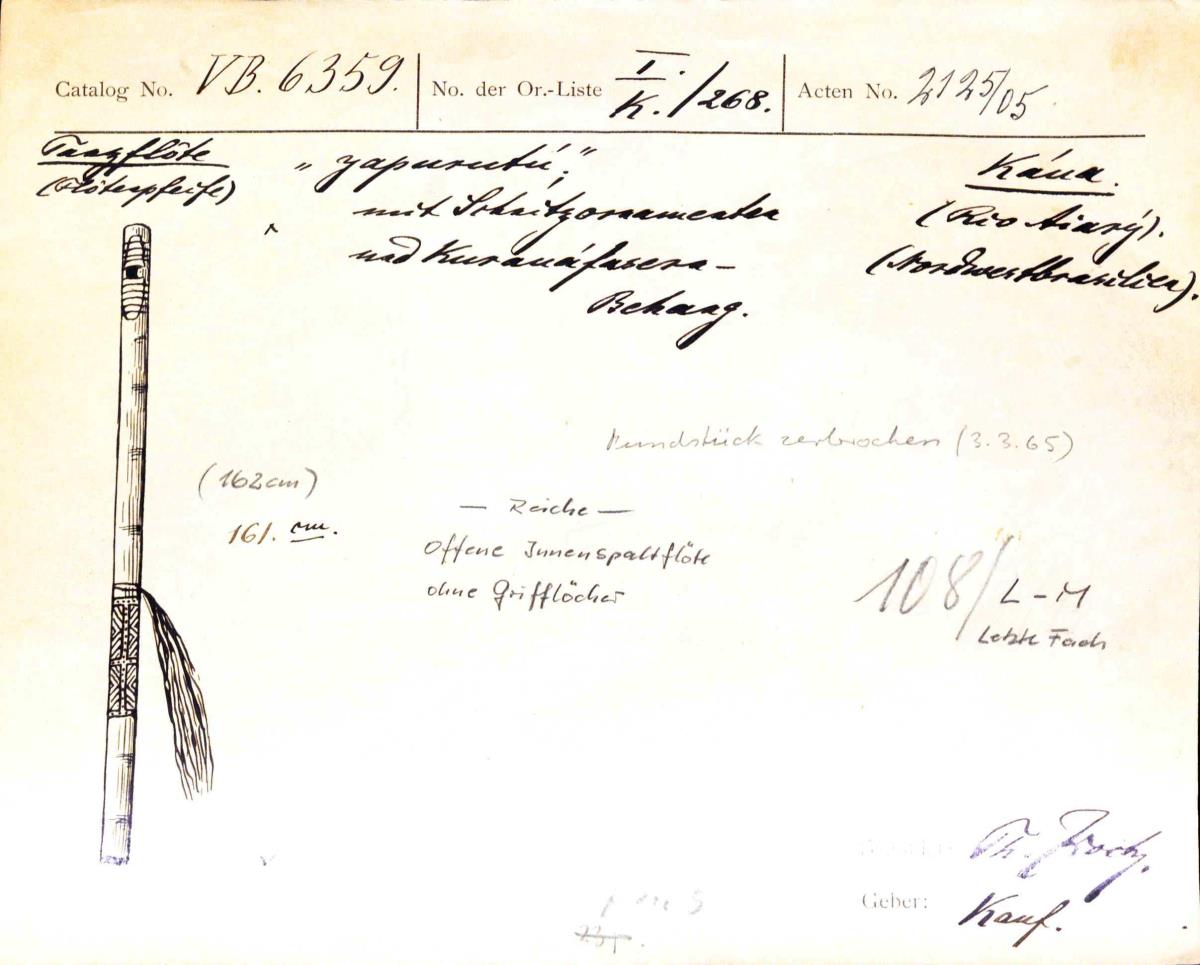 Catalog No. VB. 6359.
No. der Or.-Liste I./K./268.
Acten No. 2125/05
Tanzflöte
(Flötenpfeife)
„yapurutú,“
mit Schnitzornamenten
und Kurauáfasern-
Behang.
Káua.
(Rio Aiarý).
(Nordwestbrasilien).
Mundstück zerbrochen (3.3.65)
(162cm)
161. cm.
— Reiche —
Offene Innenspaltflöte
ohne Grifflöcher
108/ L-M
Letzte Fach
Th. Koch.
Geber: Kauf.